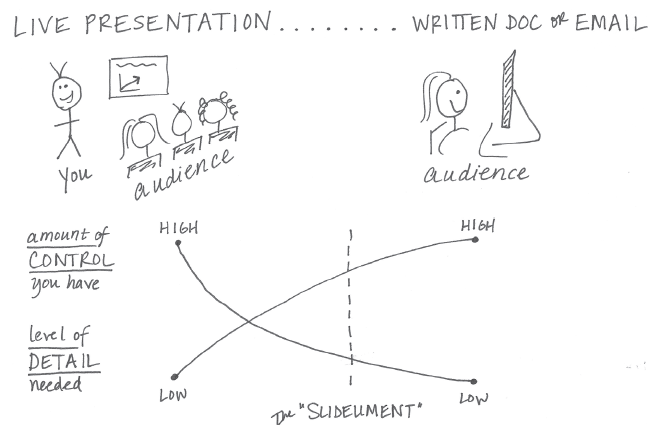 LIVE PRESENTATION ........ WRITTEN DOC or EMAIL
you
audience
audience
amount of
CONTROL
you have
level of
DETAIL
needed
HIGH
HIGH
LOW
LOW
The "SLIDEUMENT"